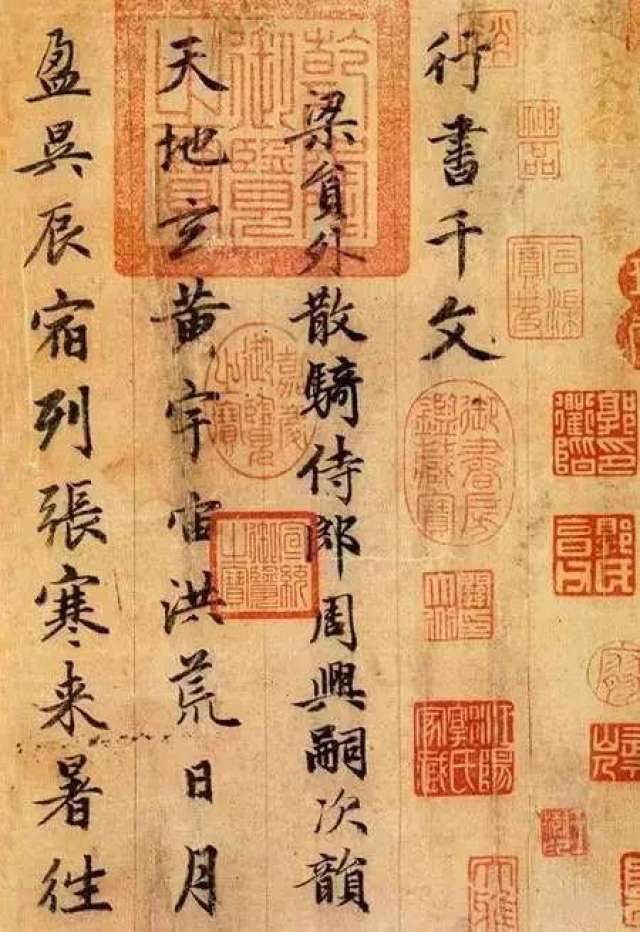 石渠寶笈
神品
郭衢階印
行書千文
御書房鑑藏寶
梁貟外散騎侍郎周興嗣次韻
乾隆御覽之寶
嘉慶御覽之寶
宣統御覽之寶
天地玄黄宇宙洪荒日月
盈昃辰宿列張寒来暑徃